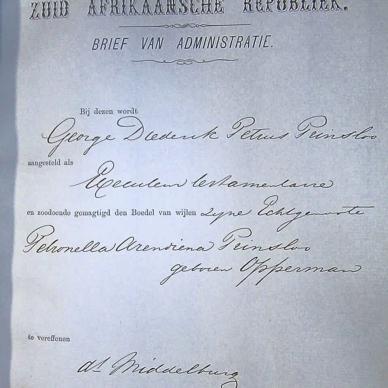 ZUID AFRIKAANSCHE REPUBLIEK.
BRIEF VAN ADMINISTRATIE.
Bij dezen wordt
George Diederik Petrus Prinsloo
aangesteld als
Executeur testamentaire
en zoodoende gemagtigd den Boedel van wijlen zyne Echtgenoote
Petronella Arendiena Prinsloo
geboren Opperman
te vereffenen
at Middelburg